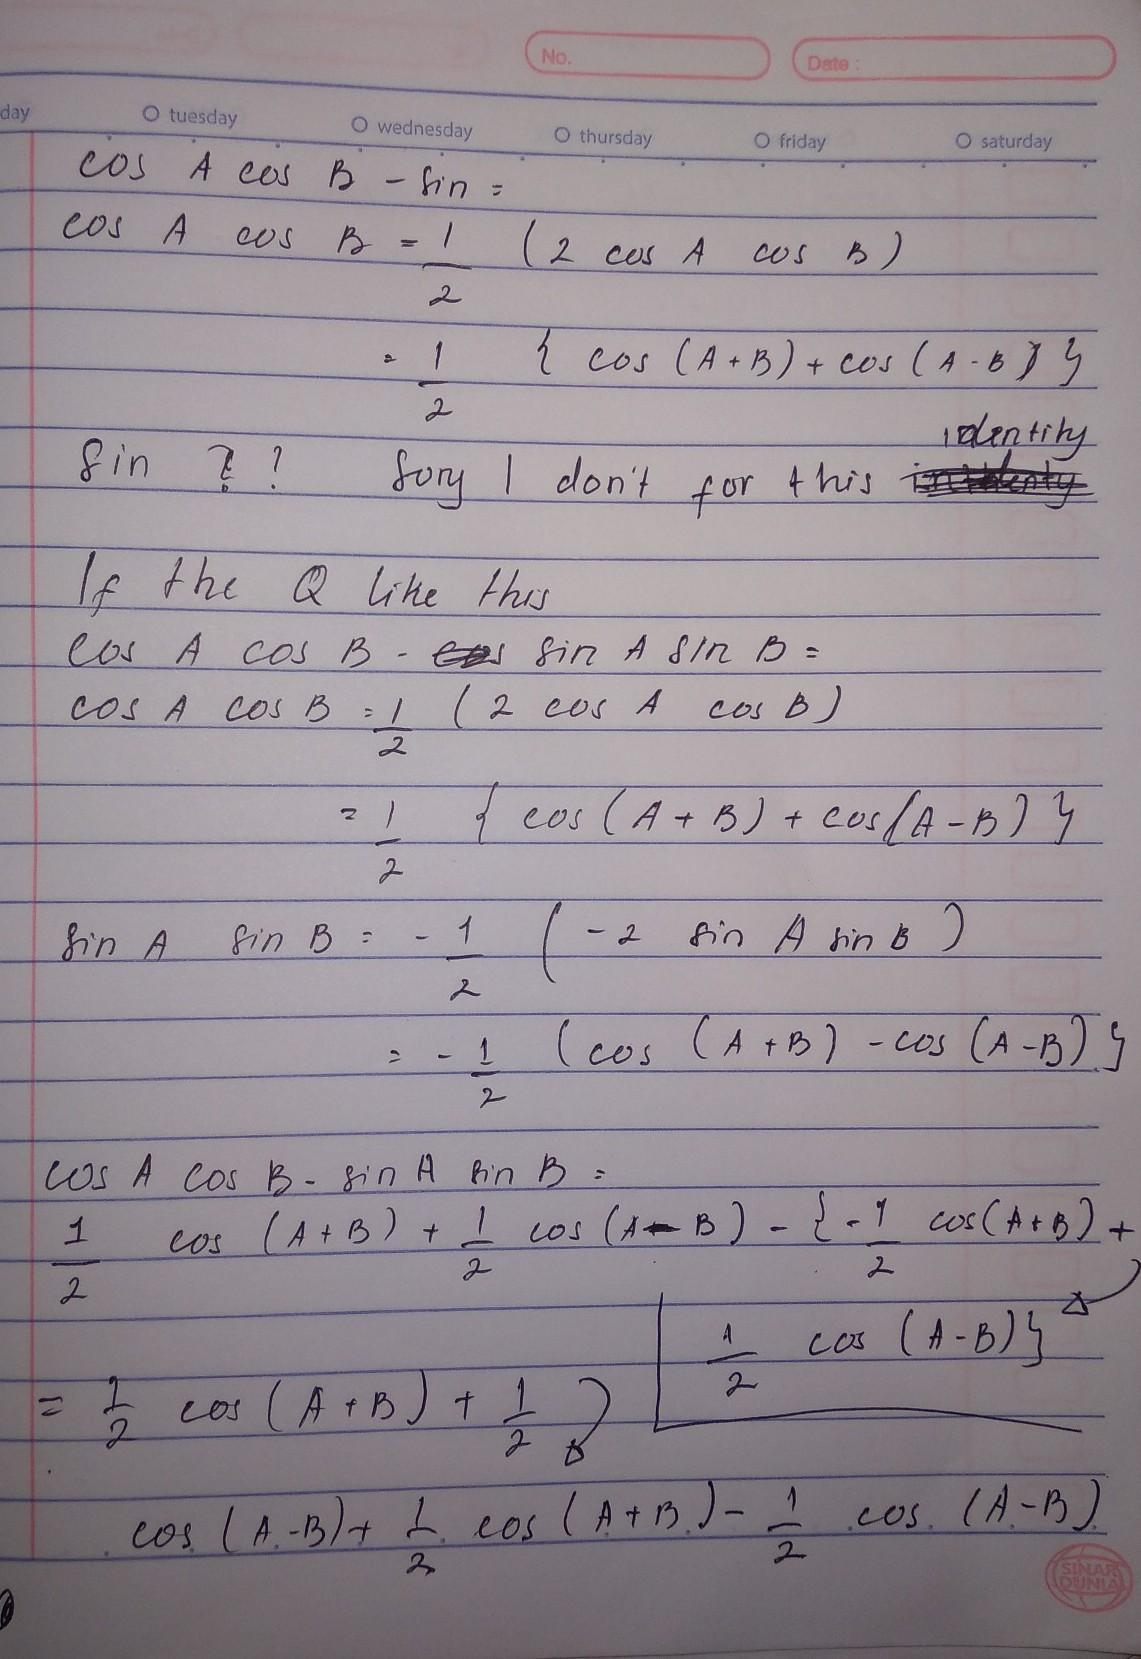 No. Date :
day O tuesday O wednesday O thursday O friday O saturday
cos A cos B - sin =
cos A cos B = 1/2 (2 cos A cos B)
= 1/2 { cos (A+B) + cos (A-B) }
sin ? ? Sory I don't for this identity
If the Q like this
cos A cos B - sin A sin B =
cos A cos B = 1/2 (2 cos A cos B)
= 1/2 { cos (A+B) + cos (A-B) }
sin A sin B = - 1/2 (-2 sin A sin B)
= - 1/2 (cos (A+B) - cos (A-B) }
cos A cos B - sin A sin B =
1/2 cos (A+B) + 1/2 cos (A-B) - { - 1/2 cos (A+B) +
1/2 cos (A-B) }
= 1/2 cos (A+B) + 1/2
cos (A-B) + 1/2 cos (A+B) - 1/2 cos (A-B)
SINAR
DUNIA